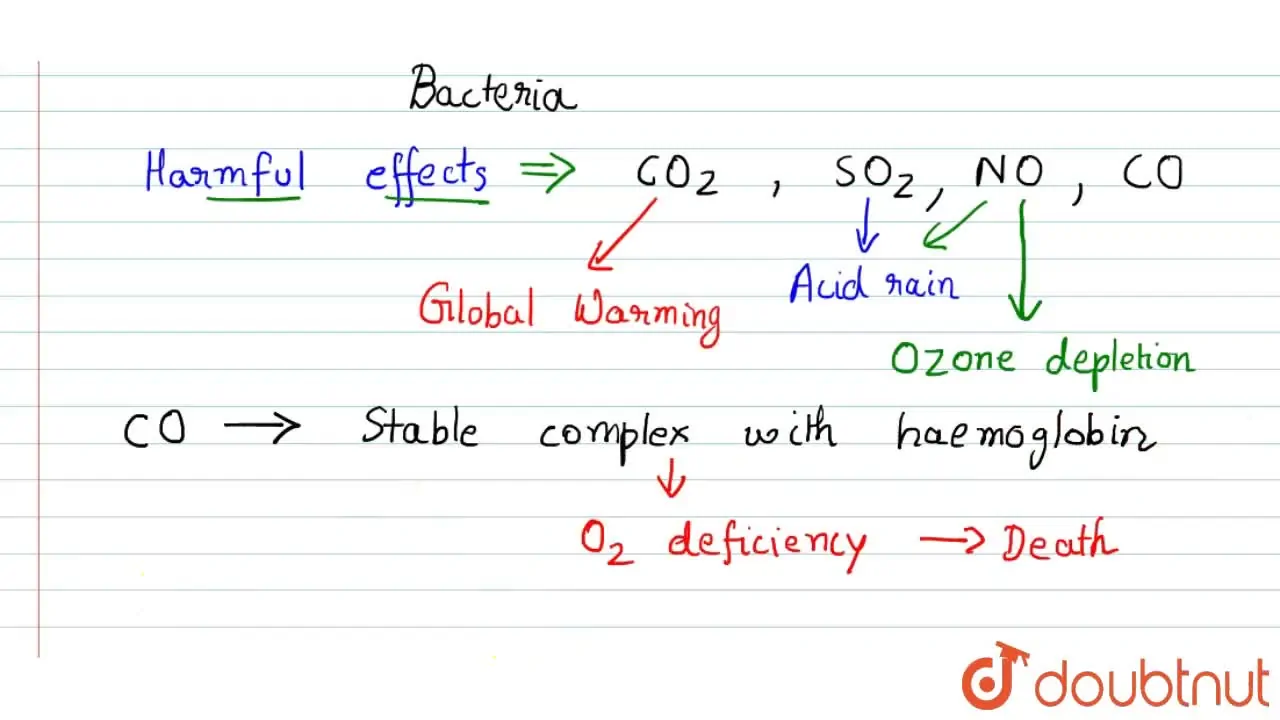 Bacteria
Harmful effects ⇒ CO2 , SO2, NO, CO
Global Warming
Acid rain
Ozone depletion
CO → Stable complex with haemoglobin
O2 deficiency → Death
doubtnut